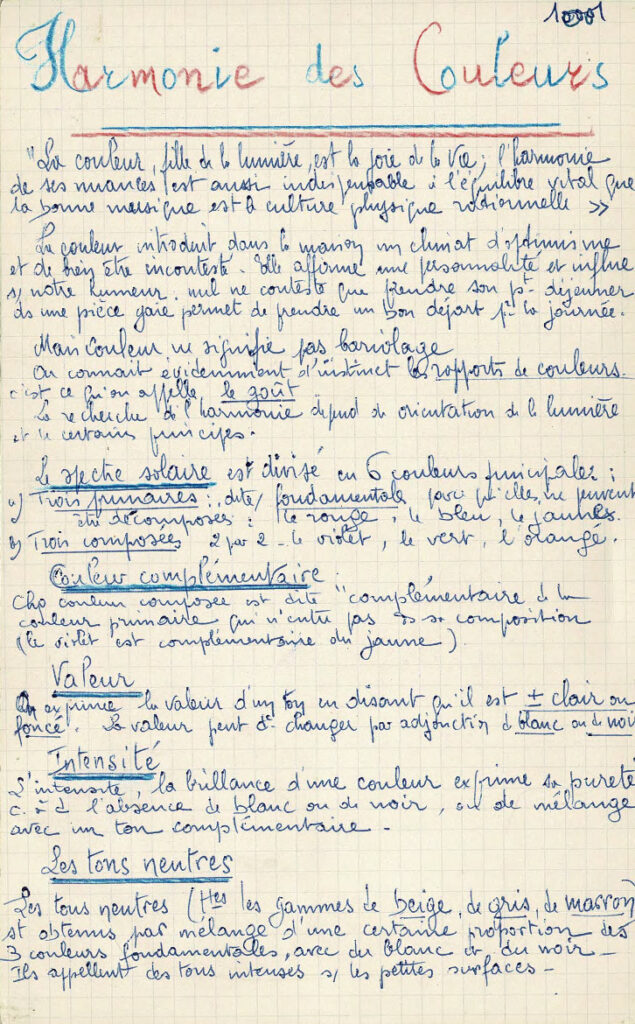 10001
Harmonie des Couleurs
"La couleur, fille de la lumière, est la joie de la Vie ; l'harmonie
de ses nuances est aussi indispensable à l'équilibre vital que
la bonne musique est la culture physique rationnelle »
La couleur introduit dans la maison un climat d'optimisme
et de bien être incontesté. Elle affirme une personnalité et influe
s/ notre humeur. nul ne conteste que prendre son pt déjeuner
ds une pièce gaie permet de prendre un bon départ pr la journée.
Mais couleur ne signifie pas bariolage
On connait évidemment d'instinct les rapports de couleurs.
c'est ce qu'on appelle le goût
La recherche de l'harmonie dépend de orientation de la lumière
et de certains principes.
Le spectre solaire est divisé en 6 couleurs principales :
a) Trois primaires : dites fondamentale parce qu'elles ne peuvent
être décomposés : le rouge, le bleu, le jaune.
b) Trois composées 2 par 2 - le violet, le vert, l'orangé.
Couleur complémentaire
Chq couleur composée est dite "complémentaire de la
couleur primaire qui n'entre pas ds sa composition
(le violet est complémentaire du jaune).
Valeur
On exprime la valeur d'un ton en disant qu'il est ± clair ou
foncé. La valeur peut dc changer par adjonction d blanc ou de noir
Intensité
L'intensité, la brillance d'une couleur exprime sa pureté
c. à d l'absence de blanc ou de noir, ou de mélange
avec un ton complémentaire -
Les tons neutres
Les tons neutres (ttes les gammes de beige, de gris, de marron)
st obtenus par mélange d'une certaine proportion des
3 couleurs fondamentales, avec du blanc et du noir -
Ils appellent des tons intenses s/ les petites surfaces -